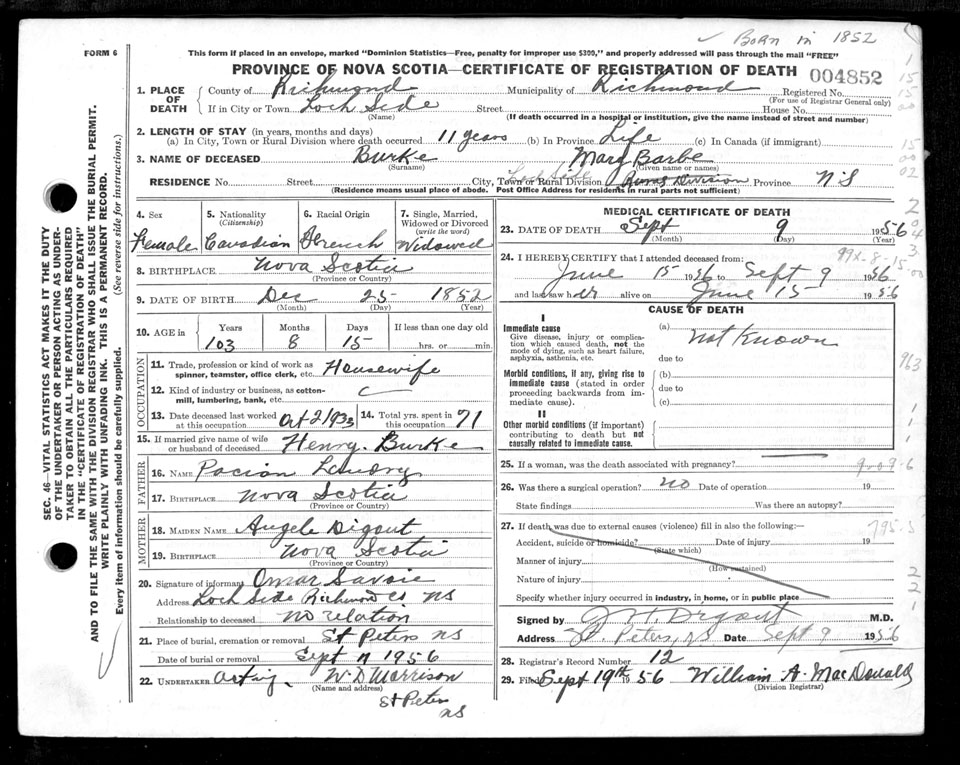 ✓ Born in 1852
FORM 6
This form if placed in an envelope, marked "Dominion Statistics—Free, penalty for improper use $300," and properly addressed will pass through the mail "FREE"
PROVINCE OF NOVA SCOTIA—CERTIFICATE OF REGISTRATION OF DEATH 004852
1. PLACE OF DEATH County of Richmond Municipality of Richmond Registered No.
(For use of Registrar General only)
If in City or Town Loch Side Street House No.
(Name) (If death occurred in a hospital or institution, give the name instead of street and number)
2. LENGTH OF STAY (in years, months and days)
(a) In City, Town or Rural Division where death occurred 11 years (b) In Province Life (c) In Canada (if immigrant)
3. NAME OF DECEASED Burke Mary Barbe
(Surname) (Given name or names)
RESIDENCE No. Street City, Town or Rural Division Loch Side Rural Division Province NS
(Residence means usual place of abode. Post Office Address for residents in rural parts not sufficient)
4. Sex Female
5. Nationality (Citizenship) Canadian
6. Racial Origin French
7. Single, Married, Widowed or Divorced (write the word) Widowed
8. BIRTHPLACE Nova Scotia
(Province or Country)
9. DATE OF BIRTH Dec 25 1852
(Month) (Day) (Year)
10. AGE in Years Months Days If less than one day old
103 8 15 hrs. or min.
OCCUPATION
11. Trade, profession or kind of work as spinner, teamster, office clerk, etc. Housewife
12. Kind of industry or business, as cotton-mill, lumbering, bank, etc.
13. Date deceased last worked at this occupation Oct 2/1933 14. Total yrs. spent in this occupation 71
15. If married give name of wife or husband of deceased Henry Burke
FATHER
16. NAME Pacion Landry
17. BIRTHPLACE Nova Scotia
(Province or Country)
MOTHER
18. MAIDEN NAME Angele Digout
19. BIRTHPLACE Nova Scotia
(Province or Country)
20. Signature of informant Omar Savoie
Address Loch Side Richmond Co NS
Relationship to deceased no relation
21. Place of burial, cremation or removal St Peters NS
Date of burial or removal Sept 11 1956
22. UNDERTAKER acting W. D Morrison
(Name and address)
St Peters
NS
MEDICAL CERTIFICATE OF DEATH
23. DATE OF DEATH Sept 9 1956
(Month) (Day) (Year)
24. I HEREBY CERTIFY that I attended deceased from: 99x-8-15
June 15 1956 to Sept 9 1956
and last saw her alive on June 15 1956
CAUSE OF DEATH
I
Immediate cause
Give disease, injury or complication which caused death, not the mode of dying, such as heart failure, asphyxia, asthenia, etc.
(a) not known
due to
Morbid conditions, if any, giving rise to immediate cause (stated in order proceeding backwards from immediate cause).
(b)
due to
(c)
II
Other morbid conditions (if important) contributing to death but not causally related to immediate cause.
25. If a woman, was the death associated with pregnancy?
26. Was there a surgical operation? no Date of operation 19
State findings Was there an autopsy?
27. If death was due to external causes (violence) fill in also the following:—
795-5
Accident, suicide or homicide? Date of injury 19
(State which)
Manner of injury
(How sustained)
Nature of injury
Specify whether injury occurred in industry, in home, or in public place
Signed by J H Digout M.D.
Address St. Peters, NS Date Sept 9 1956
28. Registrar's Record Number 12
29. Filed Sept 19th 1956 William A. MacDonald
(Division Registrar)
SEC. 46—VITAL STATISTICS ACT MAKES IT THE DUTY OF THE UNDERTAKER OR PERSON ACTING AS UNDERTAKER TO OBTAIN ALL THE PARTICULARS REQUIRED IN THE "CERTIFICATE OF REGISTRATION OF DEATH" AND TO FILE THE SAME WITH THE DIVISION REGISTRAR WHO SHALL ISSUE THE BURIAL PERMIT.
WRITE PLAINLY WITH UNFADING INK. THIS IS A PERMANENT RECORD.
Every item of information should be carefully supplied. (See reverse side for instructions.)